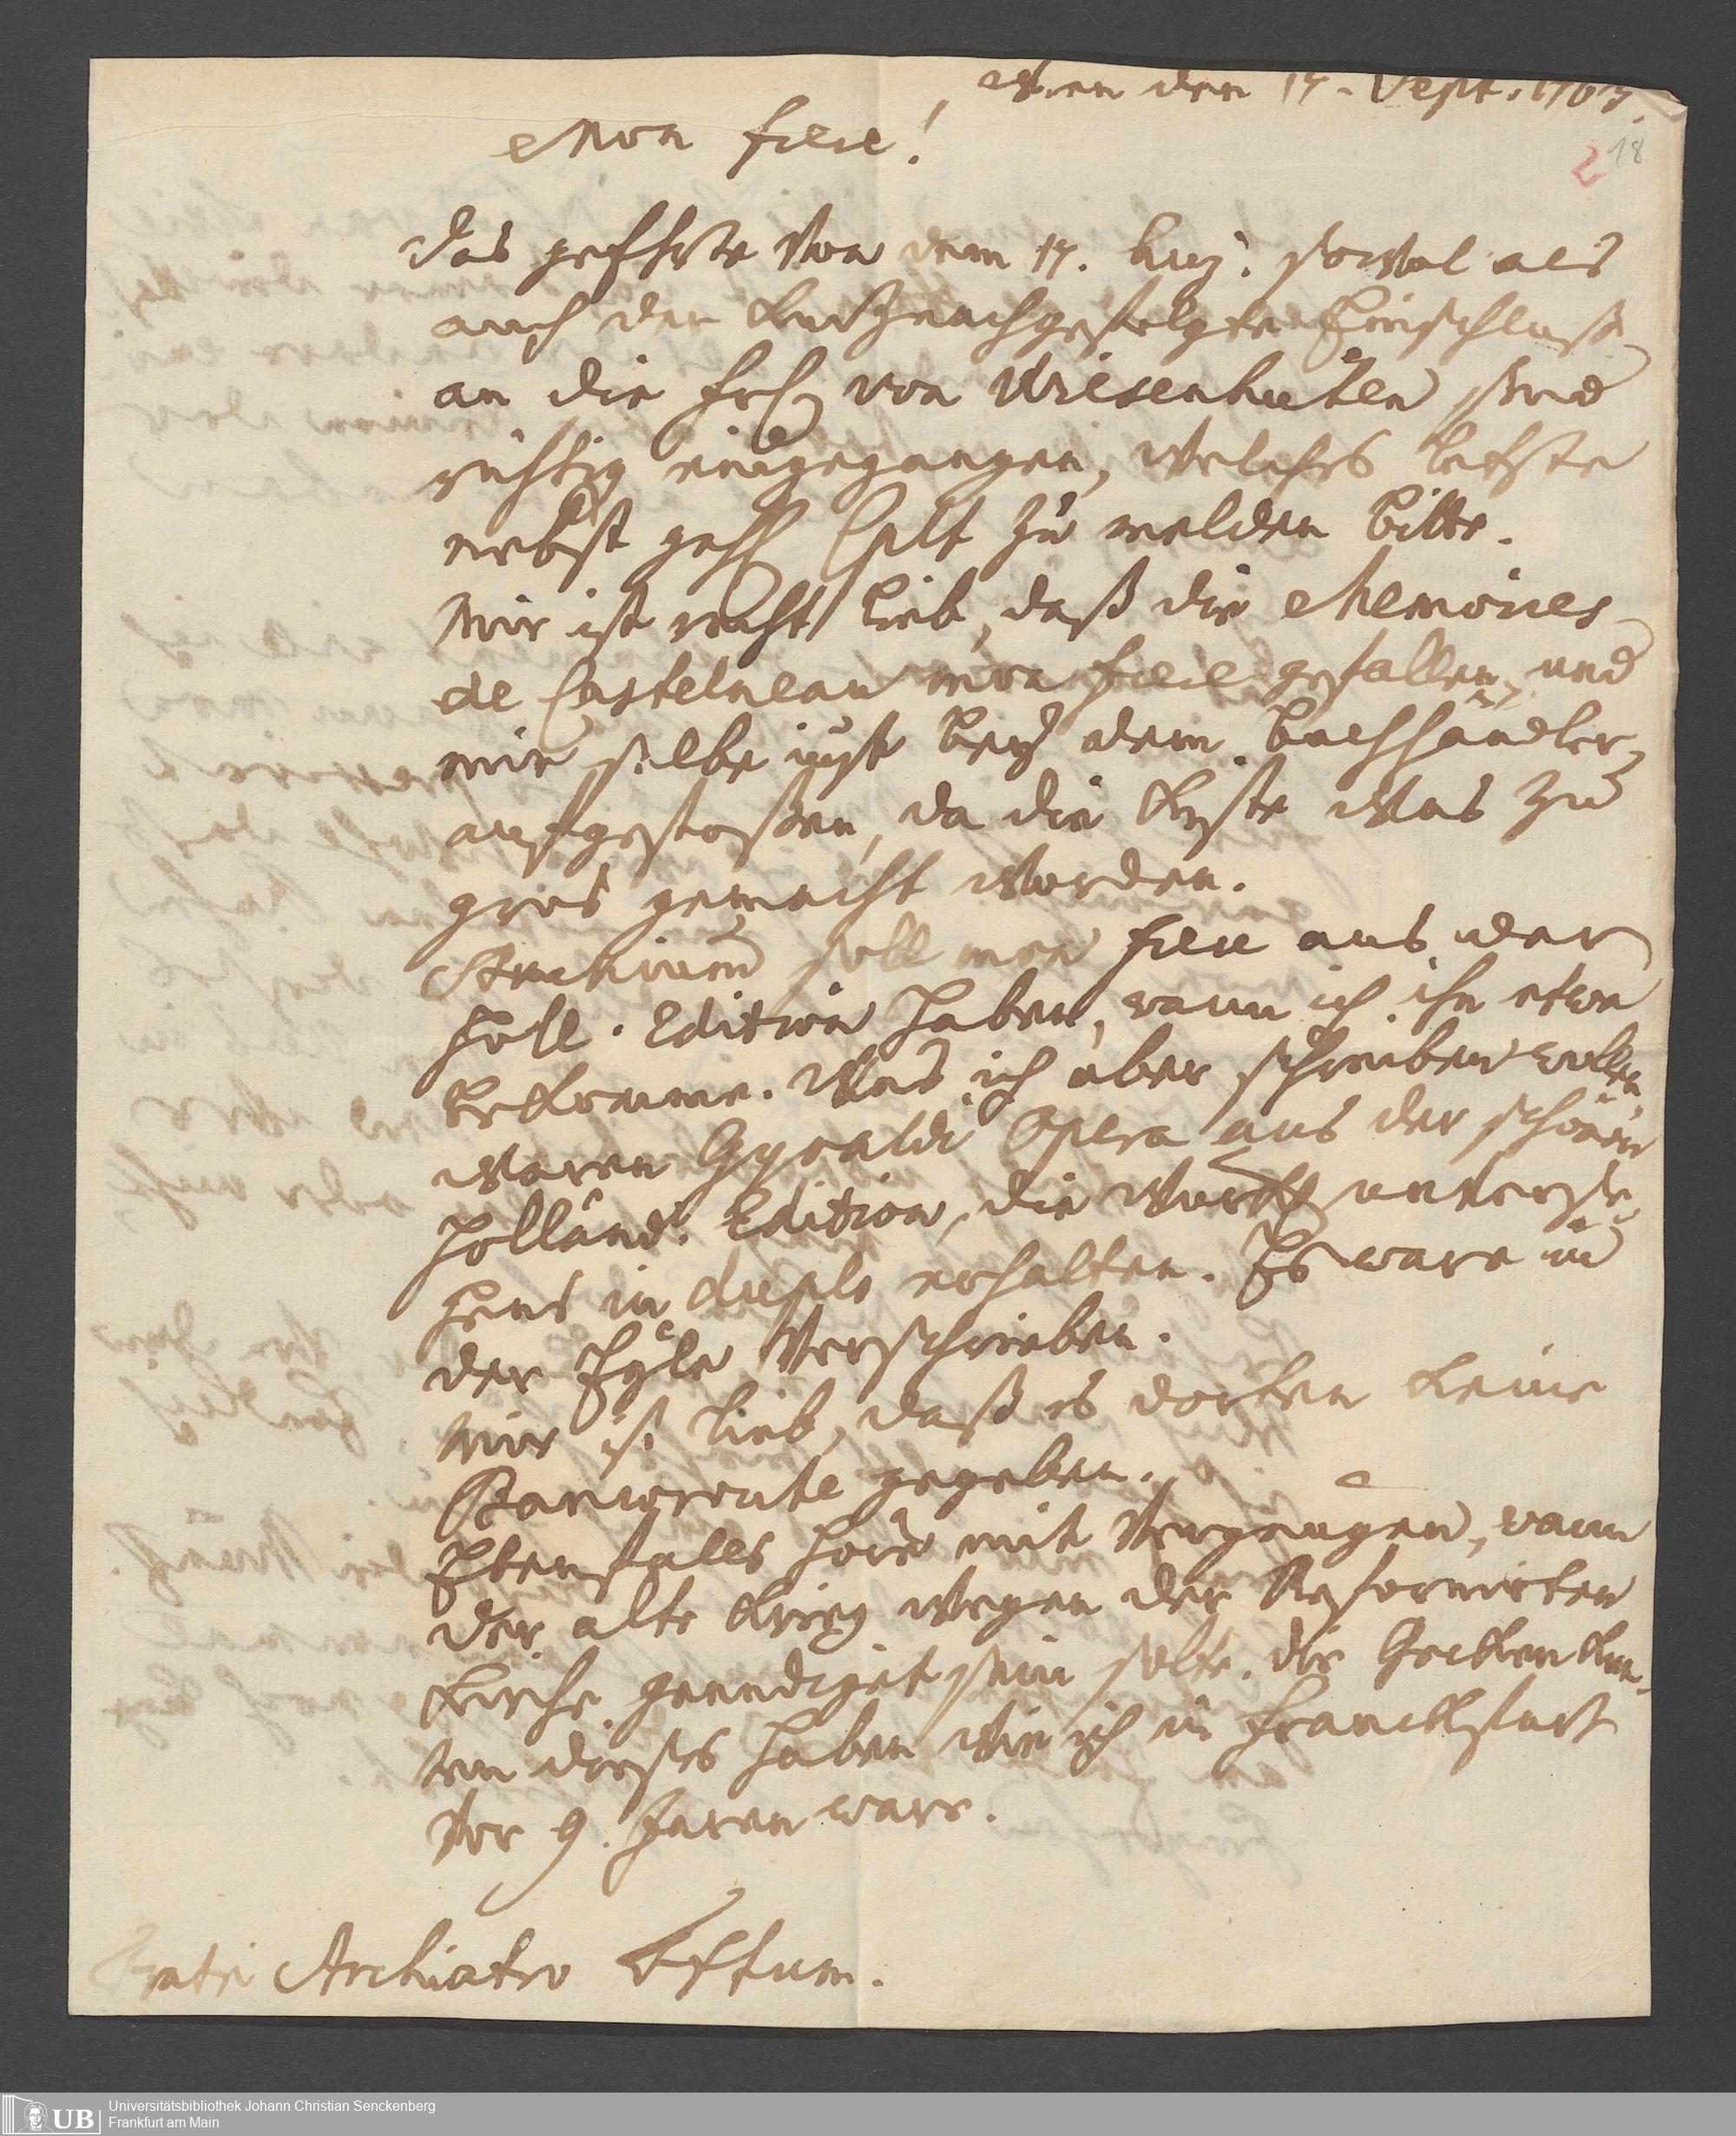 Wien den 14. Sept. 1763.
2 18
Mon frere!
Das geehrte von dem 14. huj. sowol als
auch der kurz nachgefolgte Einschluss
an die Frl von Wiesenhüten sind
richtig eingegangen, welches letzte
nebst geh Cplt zu melden bitte.
Mir ist recht lieb, daß die Memoires
de Castelneau mon frere gefallen und
mir selbe just bey dem Buchhändler
aufgestoßen, da die Kyste was zu
gros gemacht worden.
soll mon frere aus der
holl. Edition haben, wann ich ihn etwa
bekomme. Was ich aber schreiben wollen,
waren Gyraldi Opera aus der schönen
Holländ. Edition, die
in duplo erhalten. Es ware in
der Eyle verschrieben.
Mir ist lieb, daß es dorten keine
Banqueroute gegeben.
Ebenfalls höre mit Vergnügen, wann
der alte Krieg wegen der Reformirten
Kirche geendiget sein solte. Die
dieses haben wie ich in Franckfurt
vor 9. Jaren ware.
Fratri Archiatro
UB
Universitätsbibliothek Johann Christian Senckenberg
Frankfurt am Main